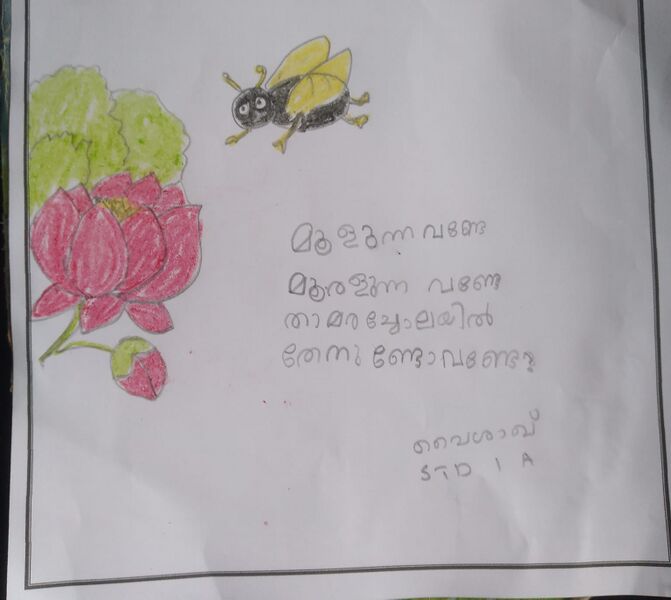 മൂളുന്ന വണ്ടേ
മുരളുന്ന വണ്ടേ
താമരച്ചോലയിൽ
തേനുണ്ടോവണ്ടേ?
വൈശാഖ്
STD I A